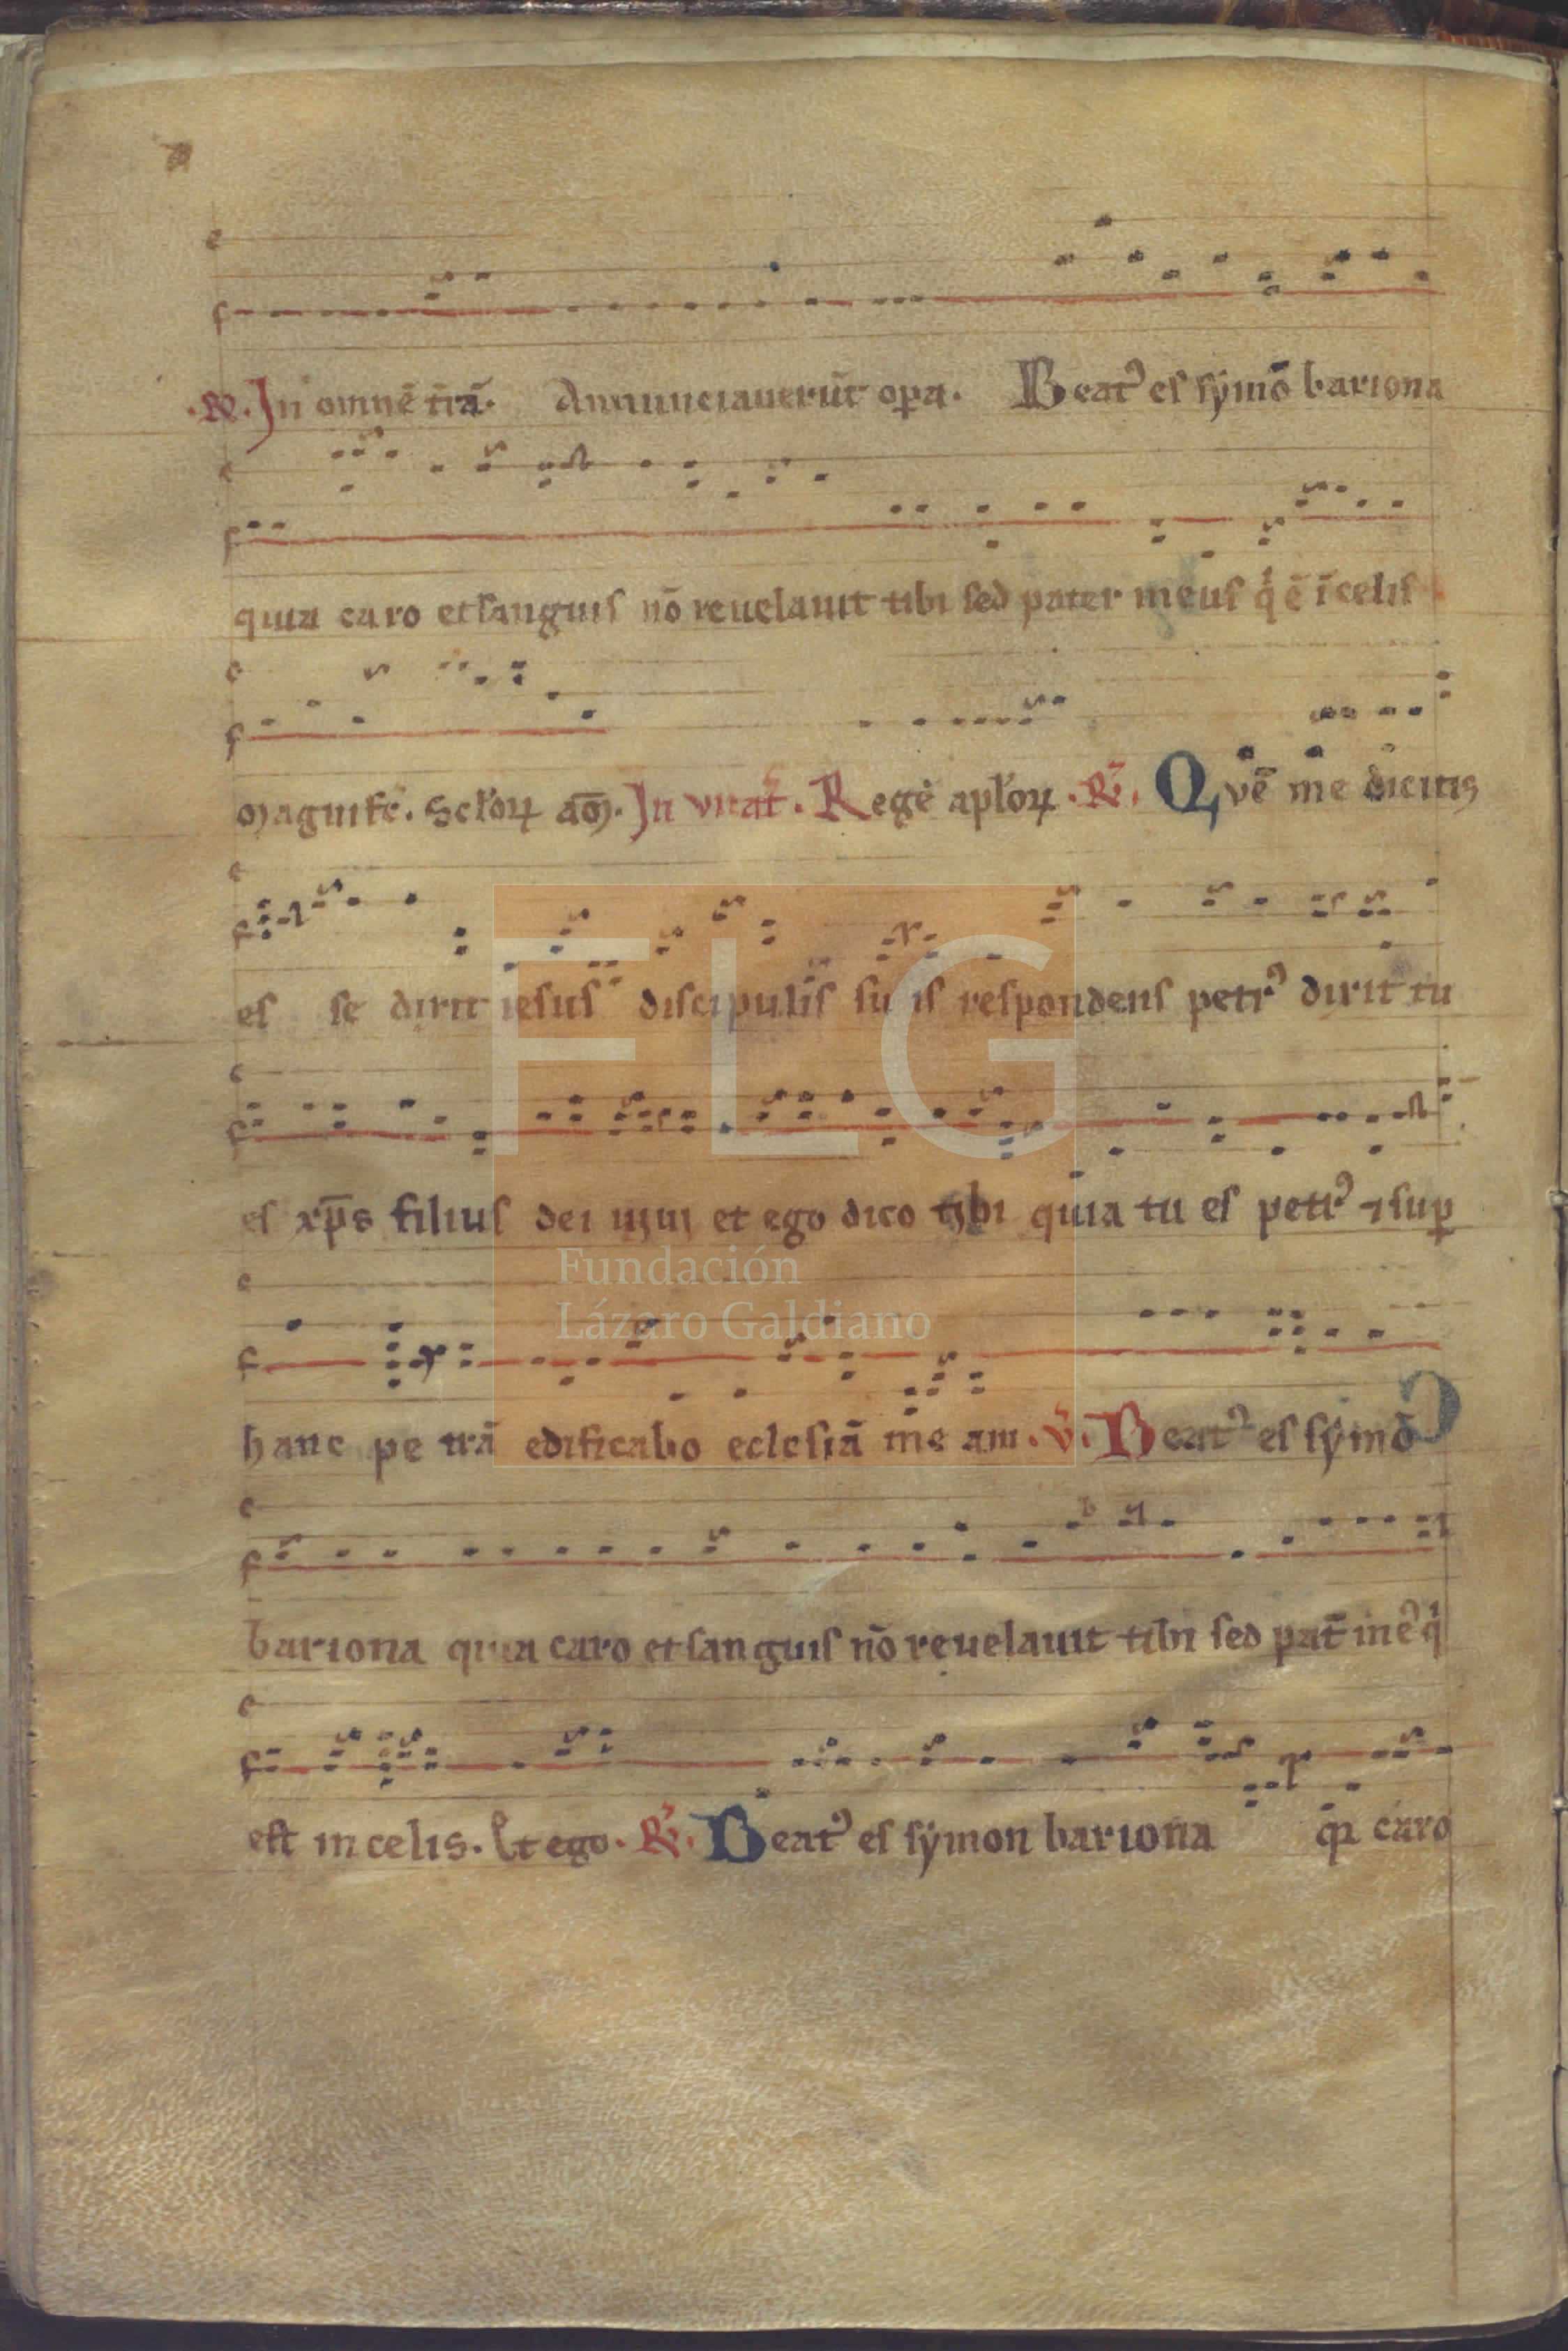 .R. In omnē tr̄ā. Annunciauerūt oꝑa. Beatꝰ es sẏmō bariona
quia caro et sanguis nō reuelauit tibi sed pater meus qͥ ē ī celis
Magnifc̄. Scl̄oꝝ am̄. In vitat̄. Regē apl̄oꝝ. R̄. Qvē me dicitis
es se dixit iesus discipulis suis respondens petrꝰ dixit tu
es xp̄s filius dei uiui et ego dico tibi quia tu es petrꝰ ⁊ suꝑ
hanc pe trā edificabo eclesiā me am. v̄. Beatꝰ es sẏmō
bariona quia caro et sanguis nō reuelauit tibi sed pat̄ meꝰ qͥ
est in celis. Et ego. R̄. Beatꝰ es sẏmon bariona qꝛ caro
FLG
Fundación
Lázaro Galdiano